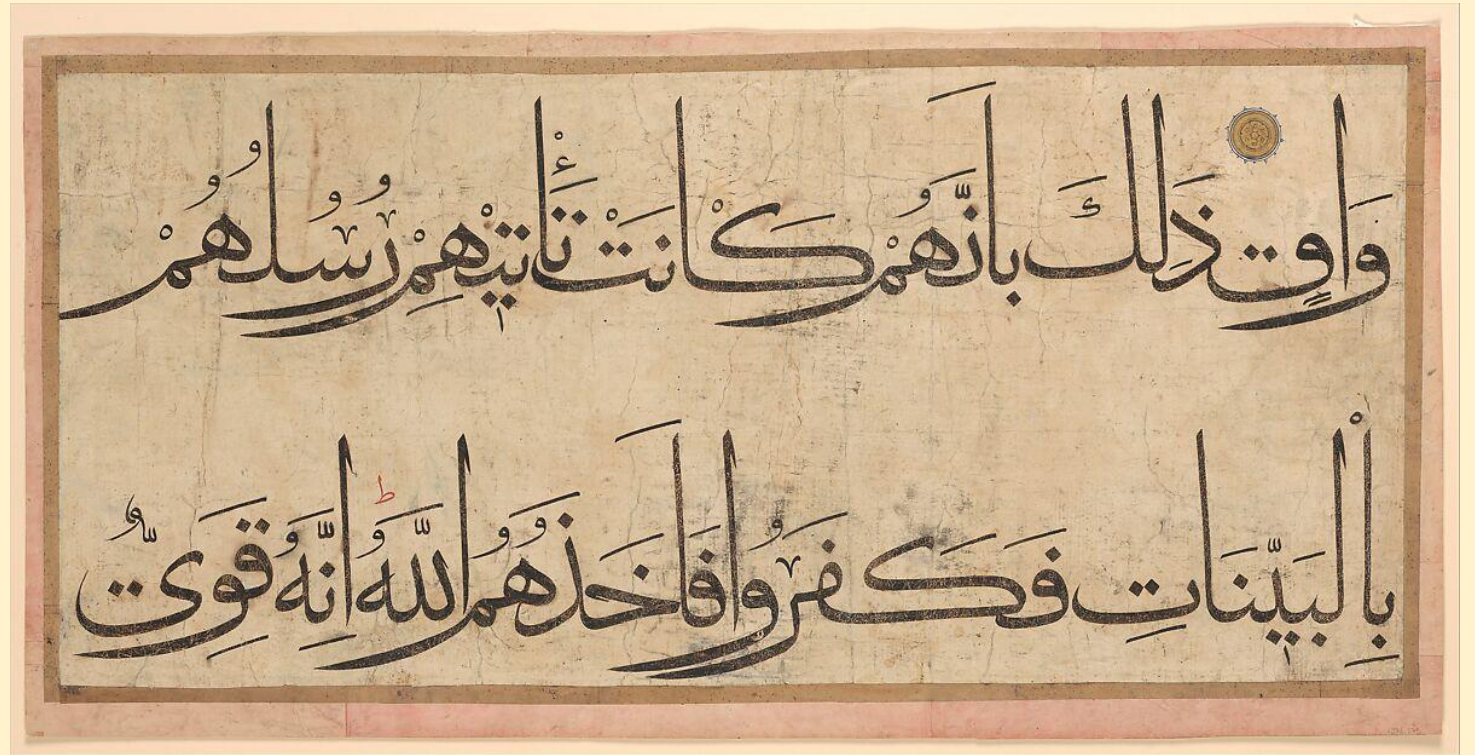 وَاقٍ ذَلِكَ بِاَنَّهُمْ كَانَتْ تَأْتِيهِمْ رُسُلُهُمْ
بِالْبَيِّنَاتِ فَكَفَرُوا فَاَخَذَهُمُ اللَّهُ اِنَّهُ قَوِيٌّ